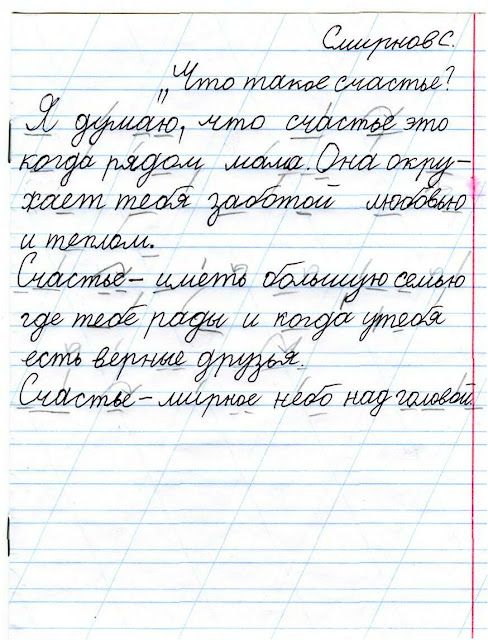 Смирнов С.
„Что такое счастье?
Я думаю, что счастье это
когда рядом мама. Она окру-
жает тебя заботой любовью
и теплом.
Счастье – иметь большую семью
где тебе рады и когда у тебя
есть верные друзья.
Счастье – мирное небо над головой.